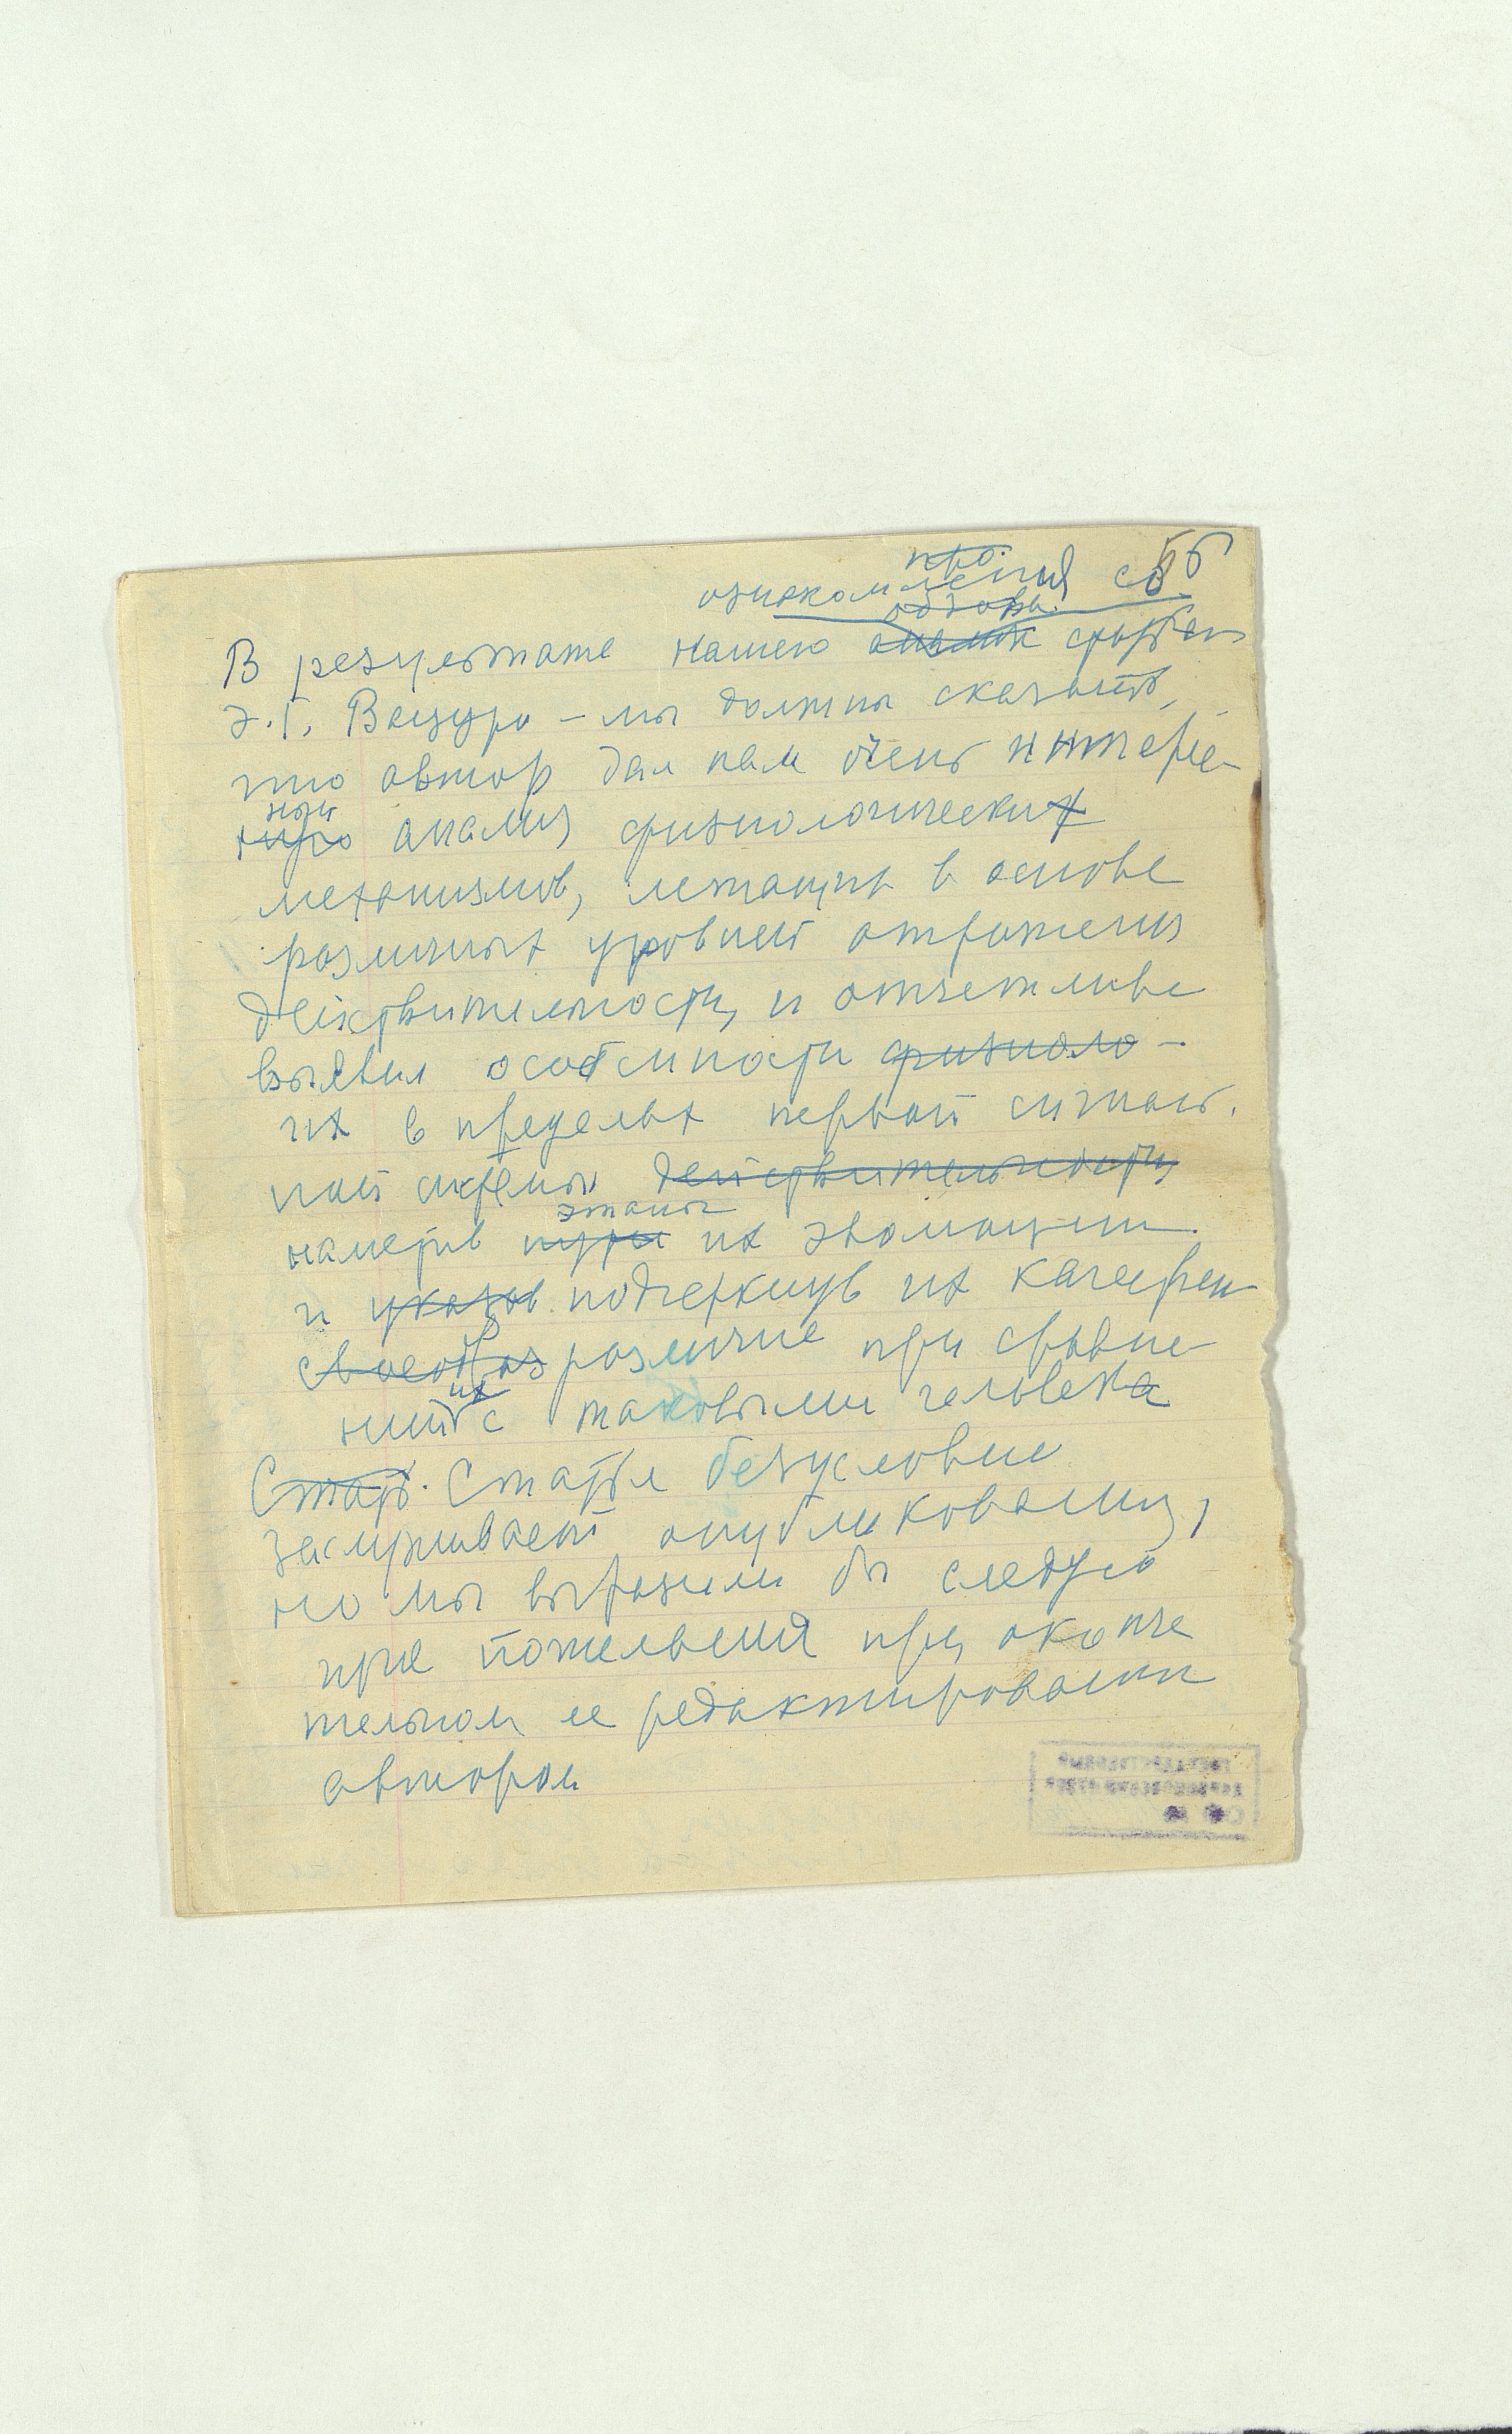 56
ознакомления со
В результате нашего статьей
Э.Г. Вацуро – мы должны сказать,
что автор дал нам очень интерес-
ный анализ физиологических
механизмов, лежащих в основе
различных уровней отражения
действительности, и отчетливо
выявил особенности физиоло-
их в пределах первой сигналь.
ной системы действительности
наметив пути этапы их эволюции
и указав подчеркнув их качествен
своеобраз различие при сравне-
нии их с таковыми человека
Стать. Статья безусловно
заслуживает опубликования,
но мы выразили бы следую
щие пожелания при оконча
тельном ее редактировании
автором